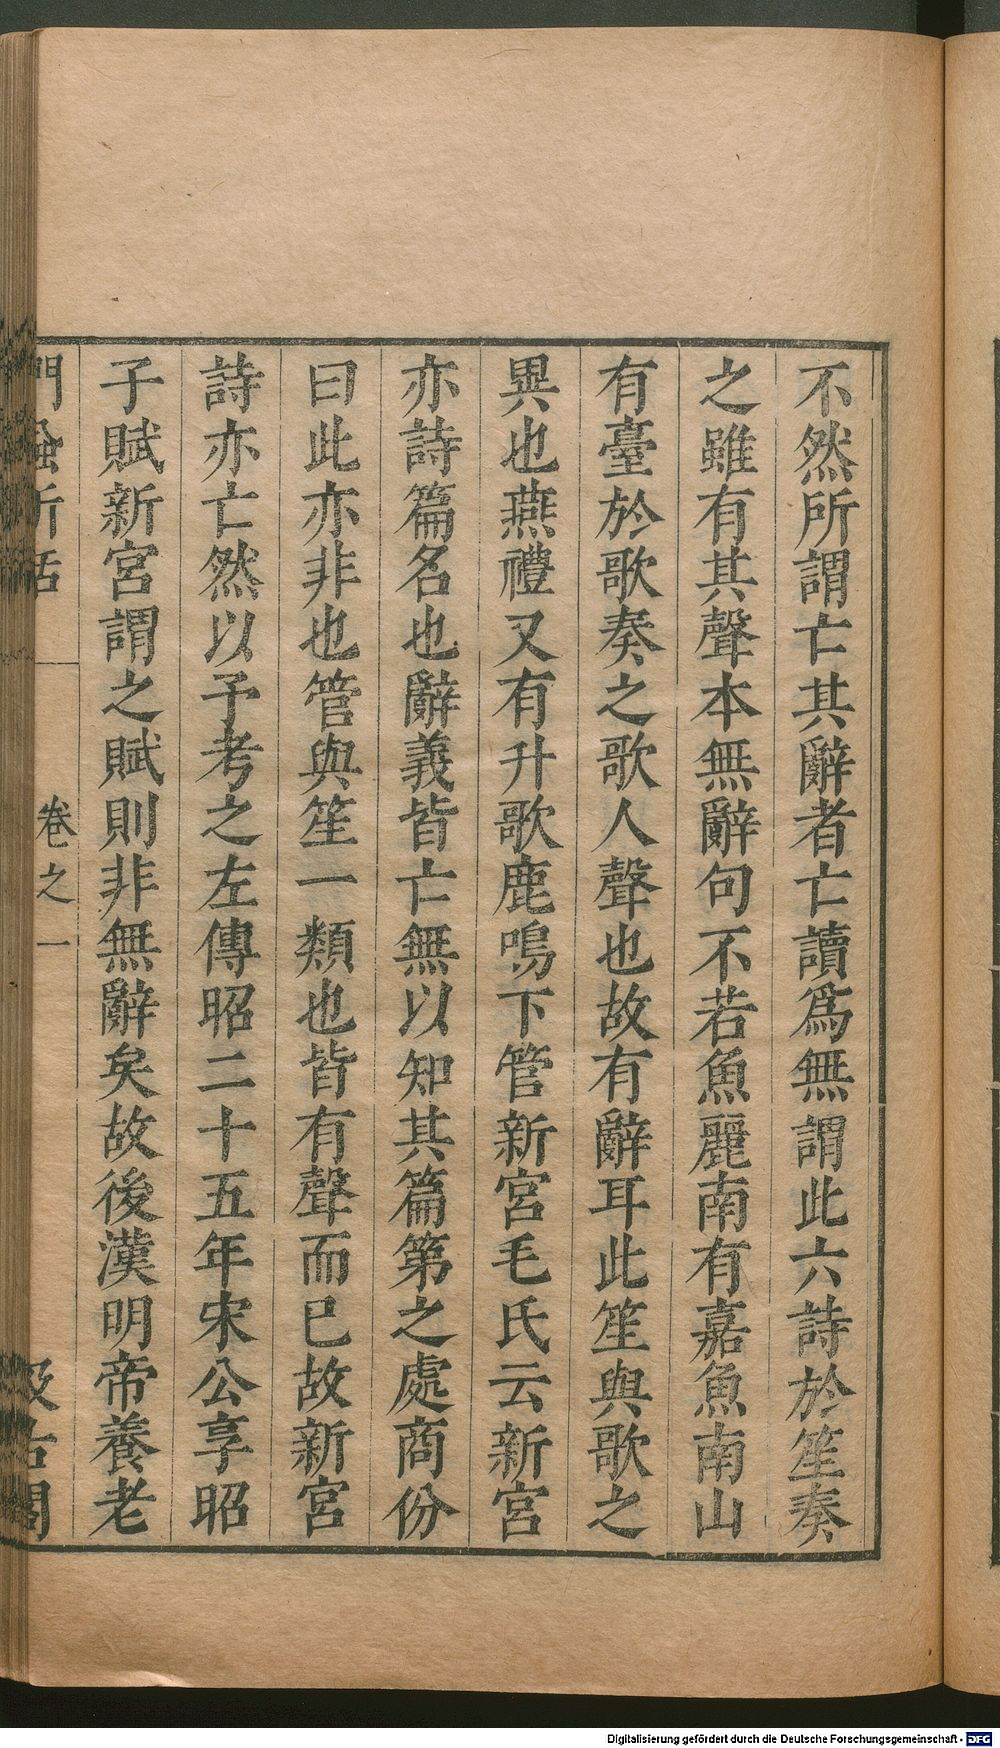 不然所謂亡其辭者亡讀爲無謂此六詩於笙奏
之雖有其聲本無辭句不若魚麗南有嘉魚南山
有臺於歌奏之歌人聲也故有辭耳此笙與歌之
異也燕禮又有升歌鹿鳴下管新宮毛氏云新宮
亦詩篇名也辭義皆亡無以知其篇第之處商份
曰此亦非也管與笙一類也皆有聲而已故新宮
詩亦亡然以予考之左傳昭二十五年宋公享昭
子賦新宮謂之賦則非無辭矣故後漢明帝養老
門蝨新話
卷之一
汲古閣
Digitalisierung gefördert durch die Deutsche Forschungsgemeinschaft - DFG